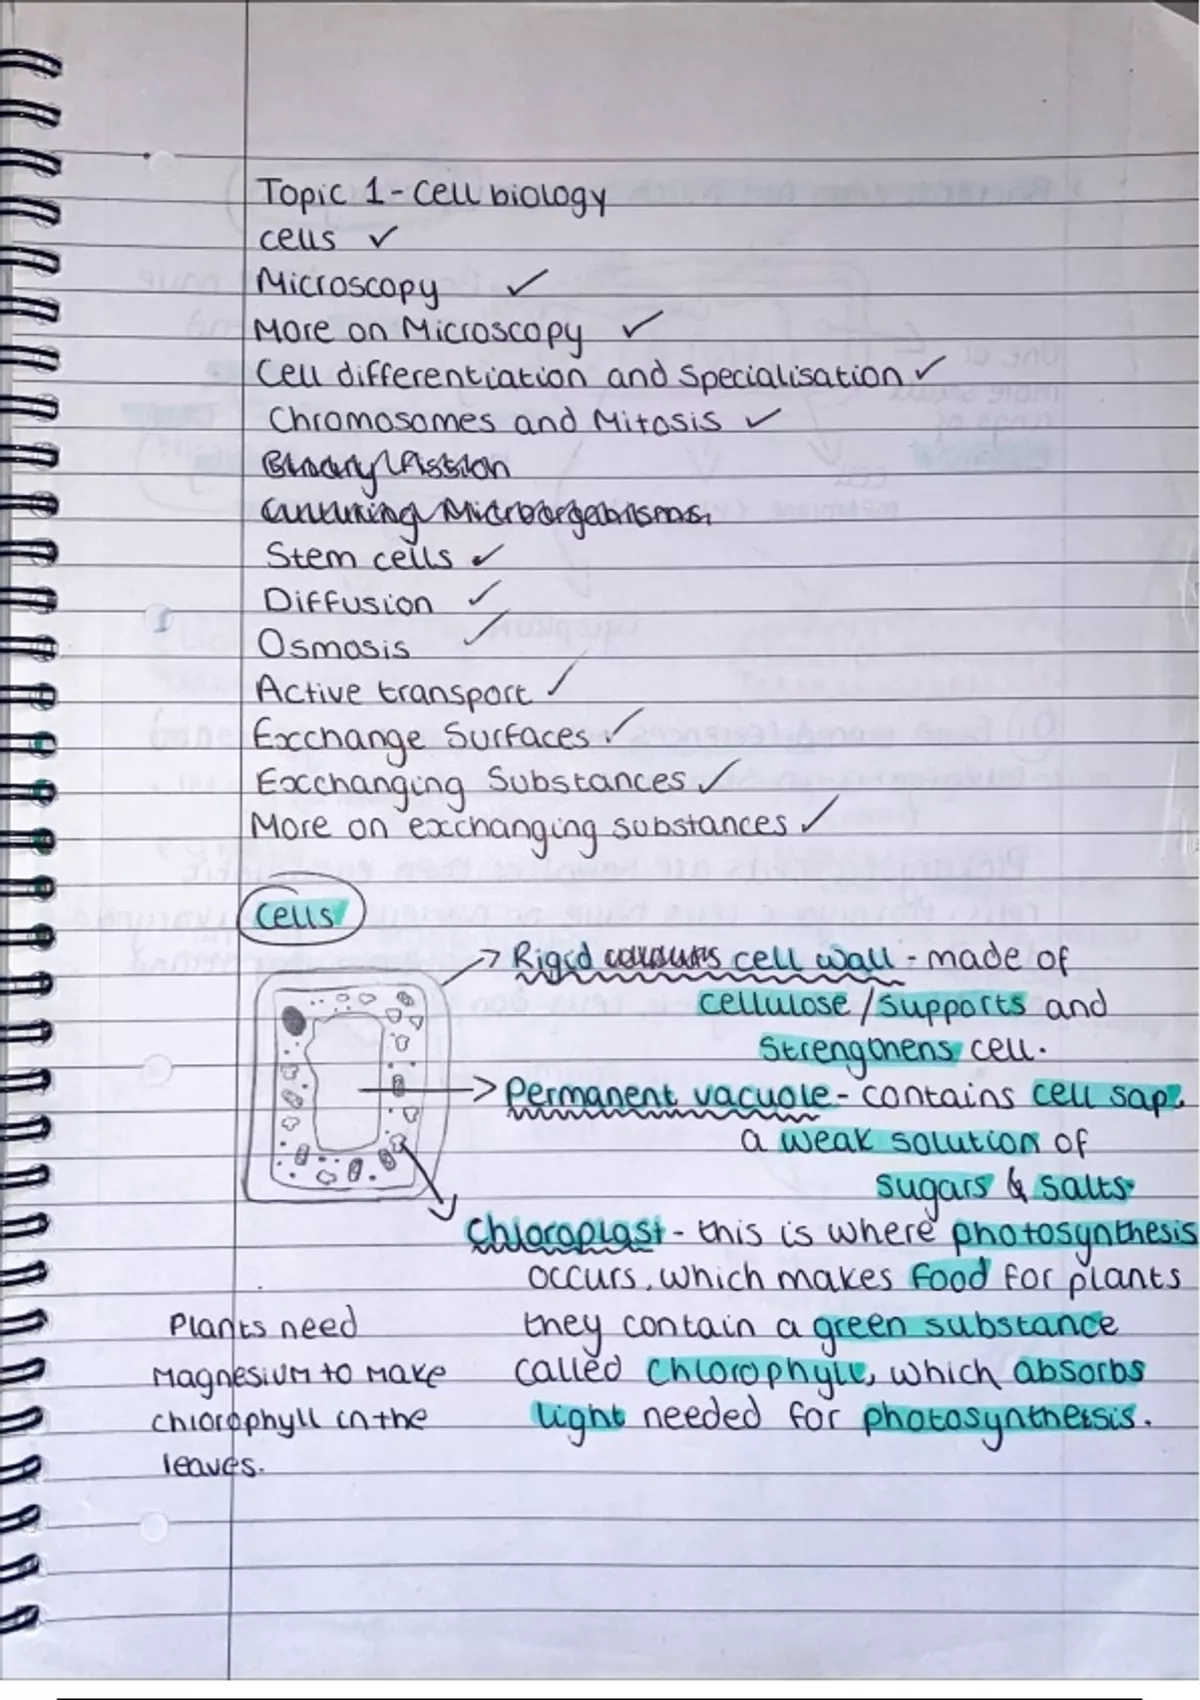 Topic 1 - Cell biology
cells ✓
Microscopy ✓
More on Microscopy ✓
Cell differentiation and Specialisation ✓
Chromosomes and Mitosis ✓
Binary Fission
Culturing Microorganisms
Stem cells ✓
Diffusion ✓
Osmosis ✓
Active transport ✓
Exchange Surfaces ✓
Exchanging Substances ✓
More on exchanging substances ✓
Cells
→ Rigid cell wall - made of
cellulose / supports and
strengthens cell.
→ Permanent vacuole - contains cell sap,
a weak solution of
sugars & salts
Chloroplast - this is where photosynthesis
occurs, which makes food for plants
they contain a green substance
called chlorophyll, which absorbs
light needed for photosynthesis.
Plants need
Magnesium to make
chlorophyll in the
leaves.